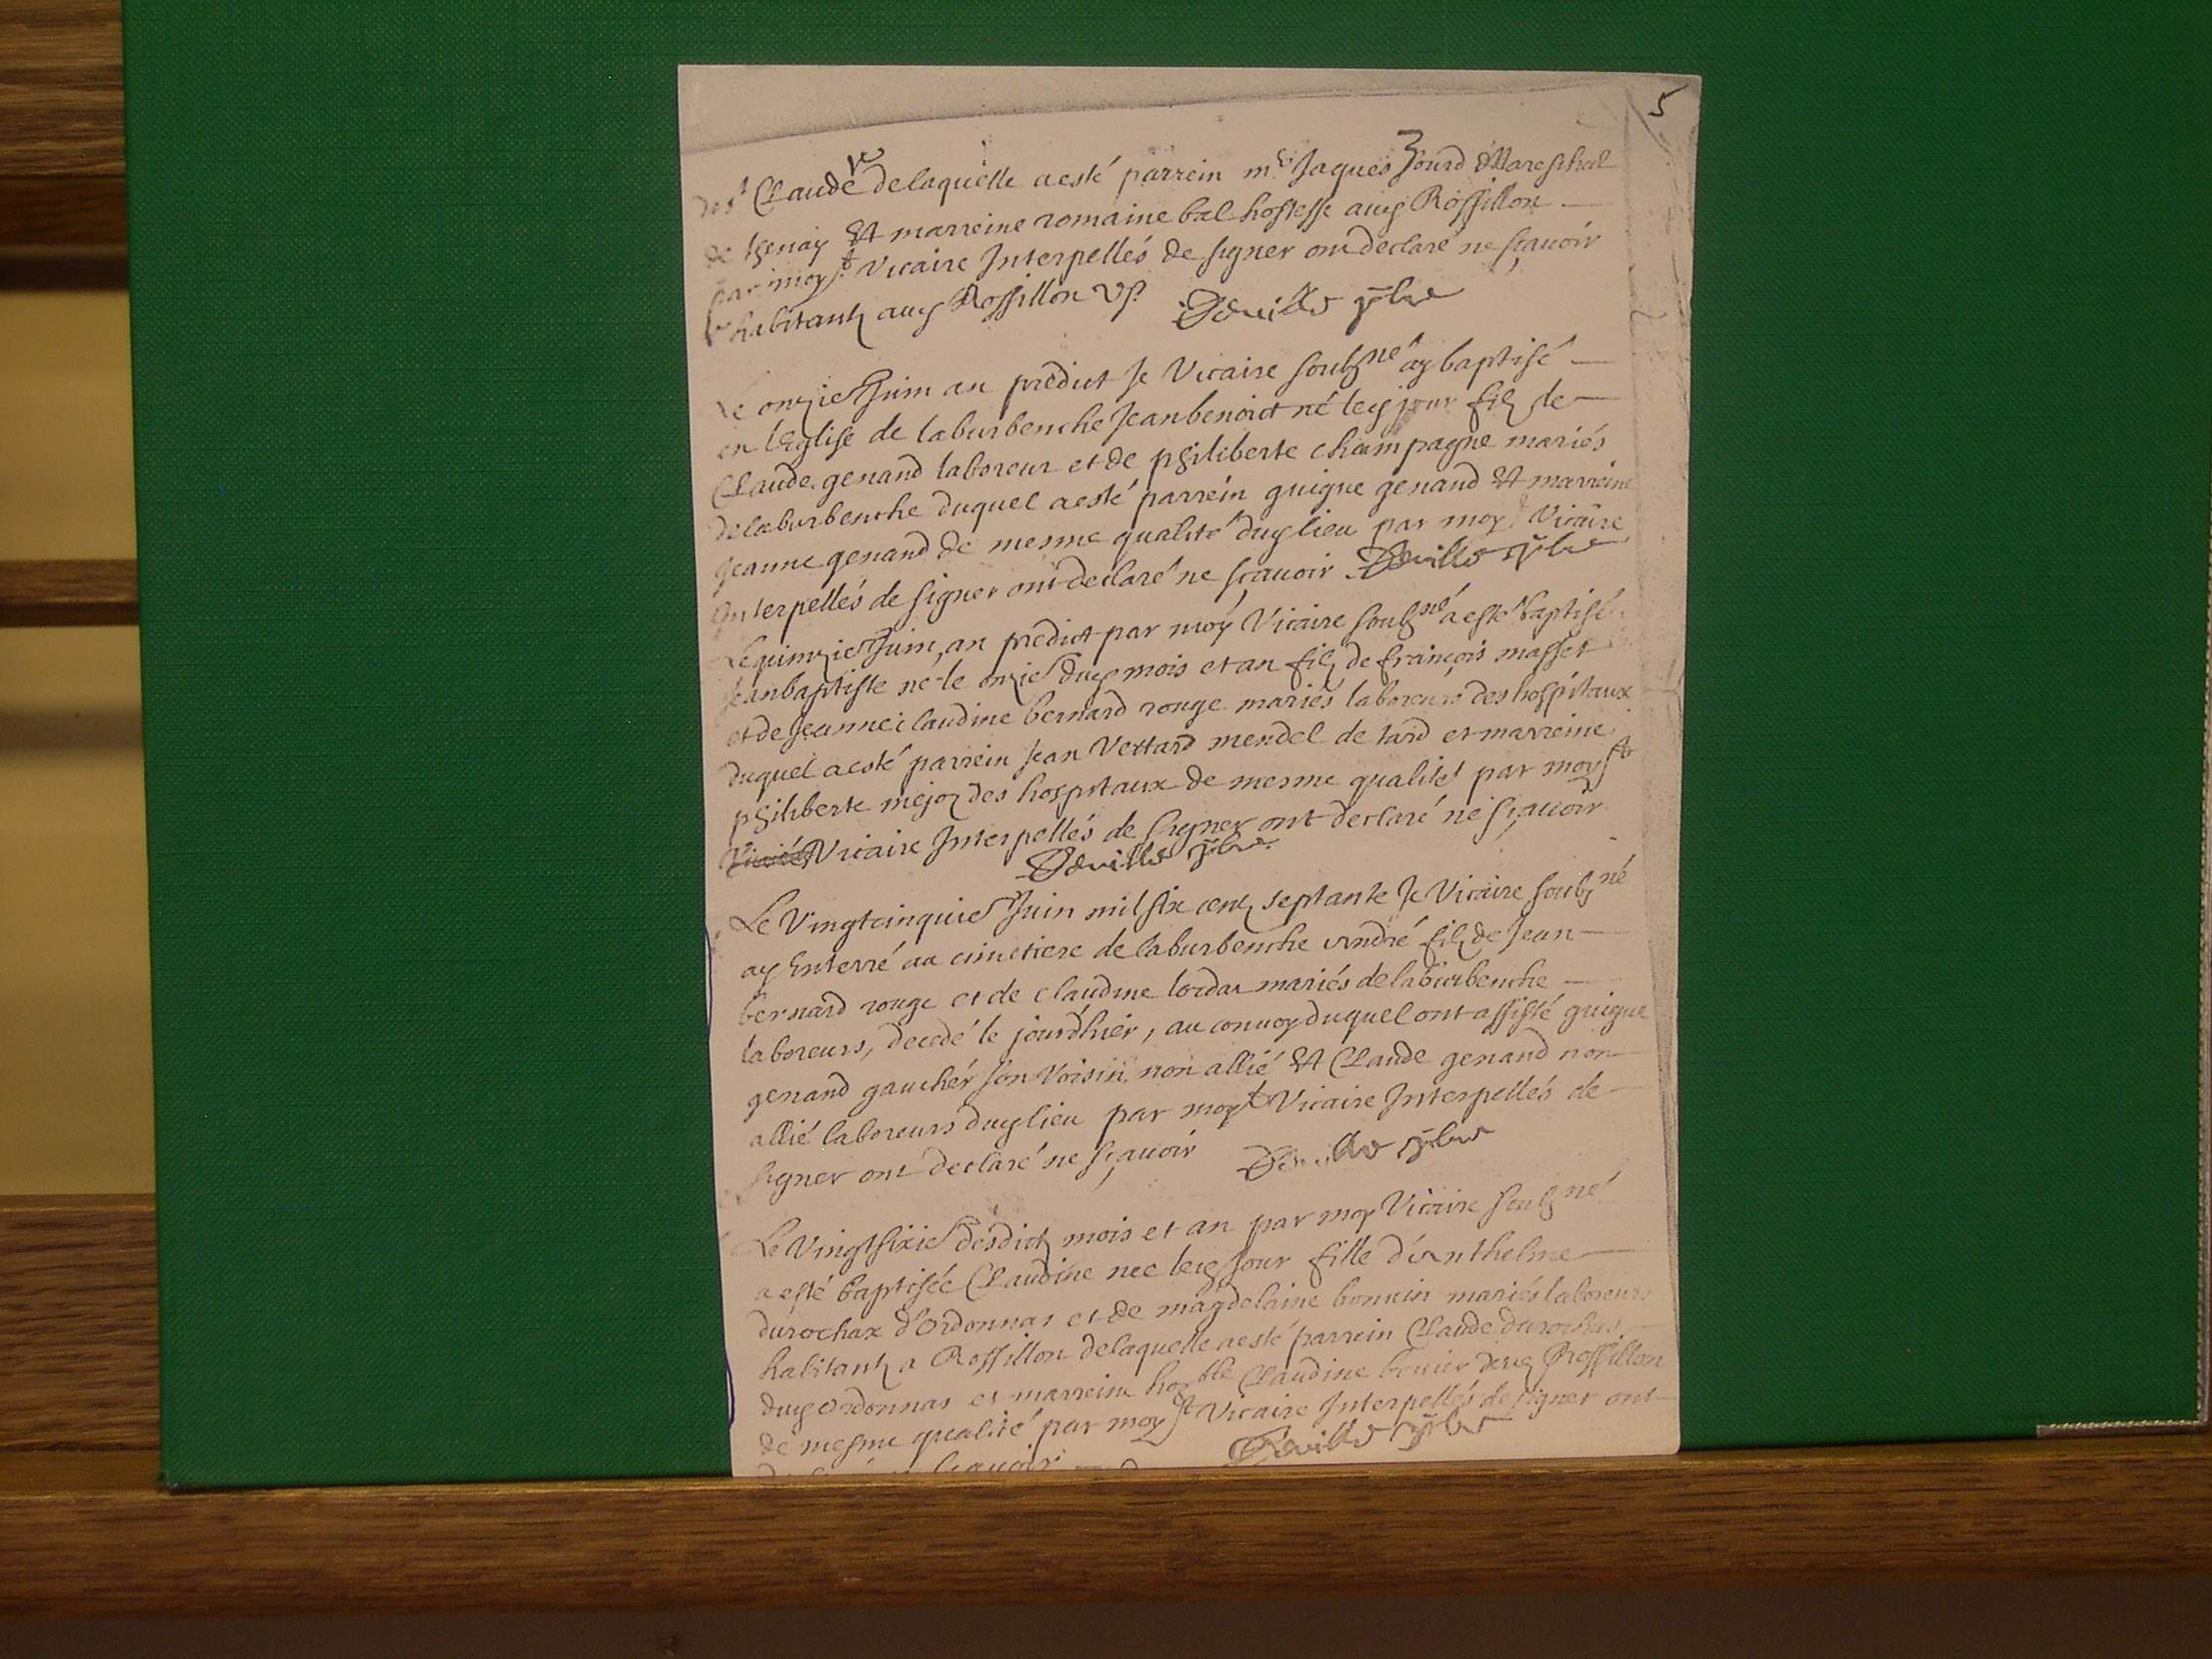 5
de st Claude delaquelle a esté parrein mr Jaques Jourd Mareschal
de tenay Et marreine romaine bal hostesse aud Rossillon
par moy st Vicaire Interpellés de signer ont declaré ne sçavoir
habitantz aud Rossillon
Deville pbre
Le onzie Juin an prédict Je Vicaire soubzné ay baptisé
en lEglise de laburbenche Jean benoict né led jour filz de
Claude genand laboreur et de philiberte champagne mariés
delaburbenche duquel a esté parrein guigue genand Et marreine
jeanne genand de mesme qualité dud lieu par moy st Vicaire
Interpellés de signer ont declaré ne sçavoir Deville pbre
Le quinzie Juin, an prédict par moy Vicaire soubzné a esté baptisé
Jeanbaptiste né le onzie dud mois et an filz de françois masset
et de Jeanne claudine bernard rouge mariés laboreurs des hospitaux
duquel a esté parrein Jean Vettard mendel de tard et marreine
philiberte mejoz des hospitaux de mesme qualité par moy st
Vicaire Interpellés de signer ont declaré ne sçavoir
Deville pbre
Le Vingtcinquie Juin mil six centz septante Je Vicaire soubzné
ay Enterré au cimetiere de laburbenche André filz de Jean
bernard rouge et de claudine mariés delaburbenche
laboreurs, decedé le jourdhier, au convoy duquel ont assisté guigue
genand gauchér son Voisin non allié Et Claude genand non
allié laboreurs dud lieu par moy st Vicaire Interpellés de
signer ont declaré ne sçavoir Deville pbre
Le Vingtsixie desdictz mois et an par moy Vicaire soubzné
a esté baptisée Claudine née led Jour fille d'Anthelme
durochax d'Ordonnas et de magdelaine bonnin mariés laboreurs
habitantz a Rossillon delaquelle a esté parrein Claude durochax
dud Ordonnas et marreine honble Claudine bouvier dud Rossillon
de mesme qualité par moy st Vicaire Interpellés de signer ont
sçavoir Deville pbre